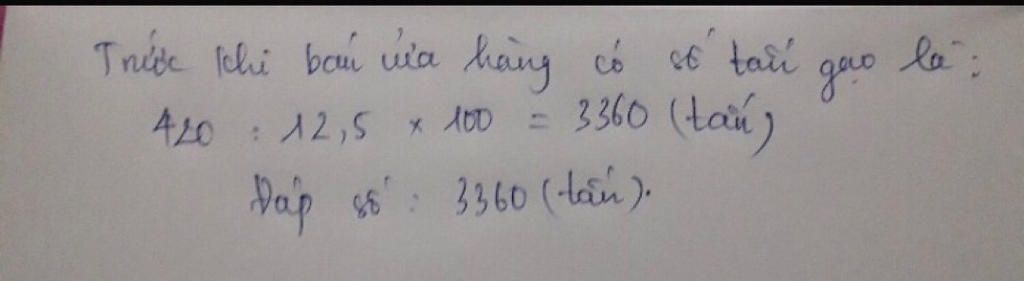 Trước khi bán cửa hàng có số tấn gạo là:
420 : 12,5 × 100 = 3360 (tấn)
Đáp số : 3360 (tấn).